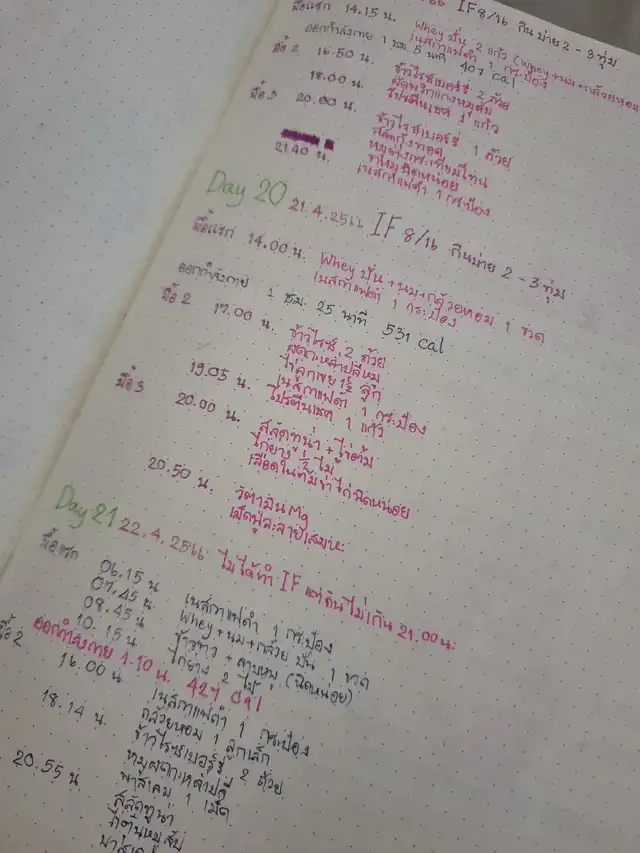 IF 8/16 กินบ่าย 2 - 3 ทุ่ม
มื้อแรก 14.15 น. Whey ปั่น 2 แก้ว (Whey+นม+กล้วยหอม
เนสกาแฟดำ 1 กระป๋อง
ออกกำลังกาย 1 ชม. 5 นาที 407 cal
มื้อ 2 16.50 น. ข้าวไรซ์เบอร์รี่ 2 ถ้วย
ผัดพริกแกงหมูสับ
18.00 น. โปรตีนเชค 1 แก้ว
มื้อ 3 20.00 น. ข้าวไรซ์เบอร์รี่ 1 ถ้วย
สลัดกุ้งทอด
หมูย่างกระเทียมโทน
ขาหมูนิดหน่อย
21.40 น. เนสกาแฟดำ 1 กระป๋อง
Day 20 21.4.2566 IF 8/16 กินบ่าย 2 - 3 ทุ่ม
มื้อแรก 14.00 น. Whey ปั่น+นม+กล้วยหอม 1 ขวด
เนสกาแฟดำ 1 กระป๋อง
ออกกำลังกาย 1 ชม. 25 นาที 531 cal
มื้อ 2 17.00 น. ข้าวไรซ์ 2 ถ้วย
ผัดกะหล่ำปลีหมู
ไข่ลูกเขย 1½ ลูก
เนสกาแฟดำ 1 กระป๋อง
19.05 น. โปรตีนเชค 1 แก้ว
มื้อ 3 20.00 น. สลัดทูน่า + ไข่ต้ม
ไก่ย่าง ½ ไม้
เลือดในต้มขาไก่นิดหน่อย
20.50 น. วิตามิน Mg
เม็ดฟู่ละลายเสมหะ
Day 21 22.4.2566 ไม่ได้ทำ IF แต่กินไม่เกิน 21.00 น.
มื้อแรก 06.15 น. เนสกาแฟดำ 1 กระป๋อง
07.45 น. Whey+นม+กล้วย ปั่น 1 ขวด
08.45 น. ข้าวขาว + คาบหมู (นิดหน่อย)
10.15 น. ไก่ย่าง 2 ไม้
ออกกำลังกาย 1.10 น. 427 cal
มื้อ 2 16.00 น. เนสกาแฟดำ 1 กระป๋อง
กล้วยหอม 1 ลูกเล็ก
18.14 น. ข้าวไรซ์เบอร์รี่ 2 ถ้วย
หมูผัดกะหล่ำปลี
พาสเคม 1 เม็ด
20.55 น. สลัดทูน่า